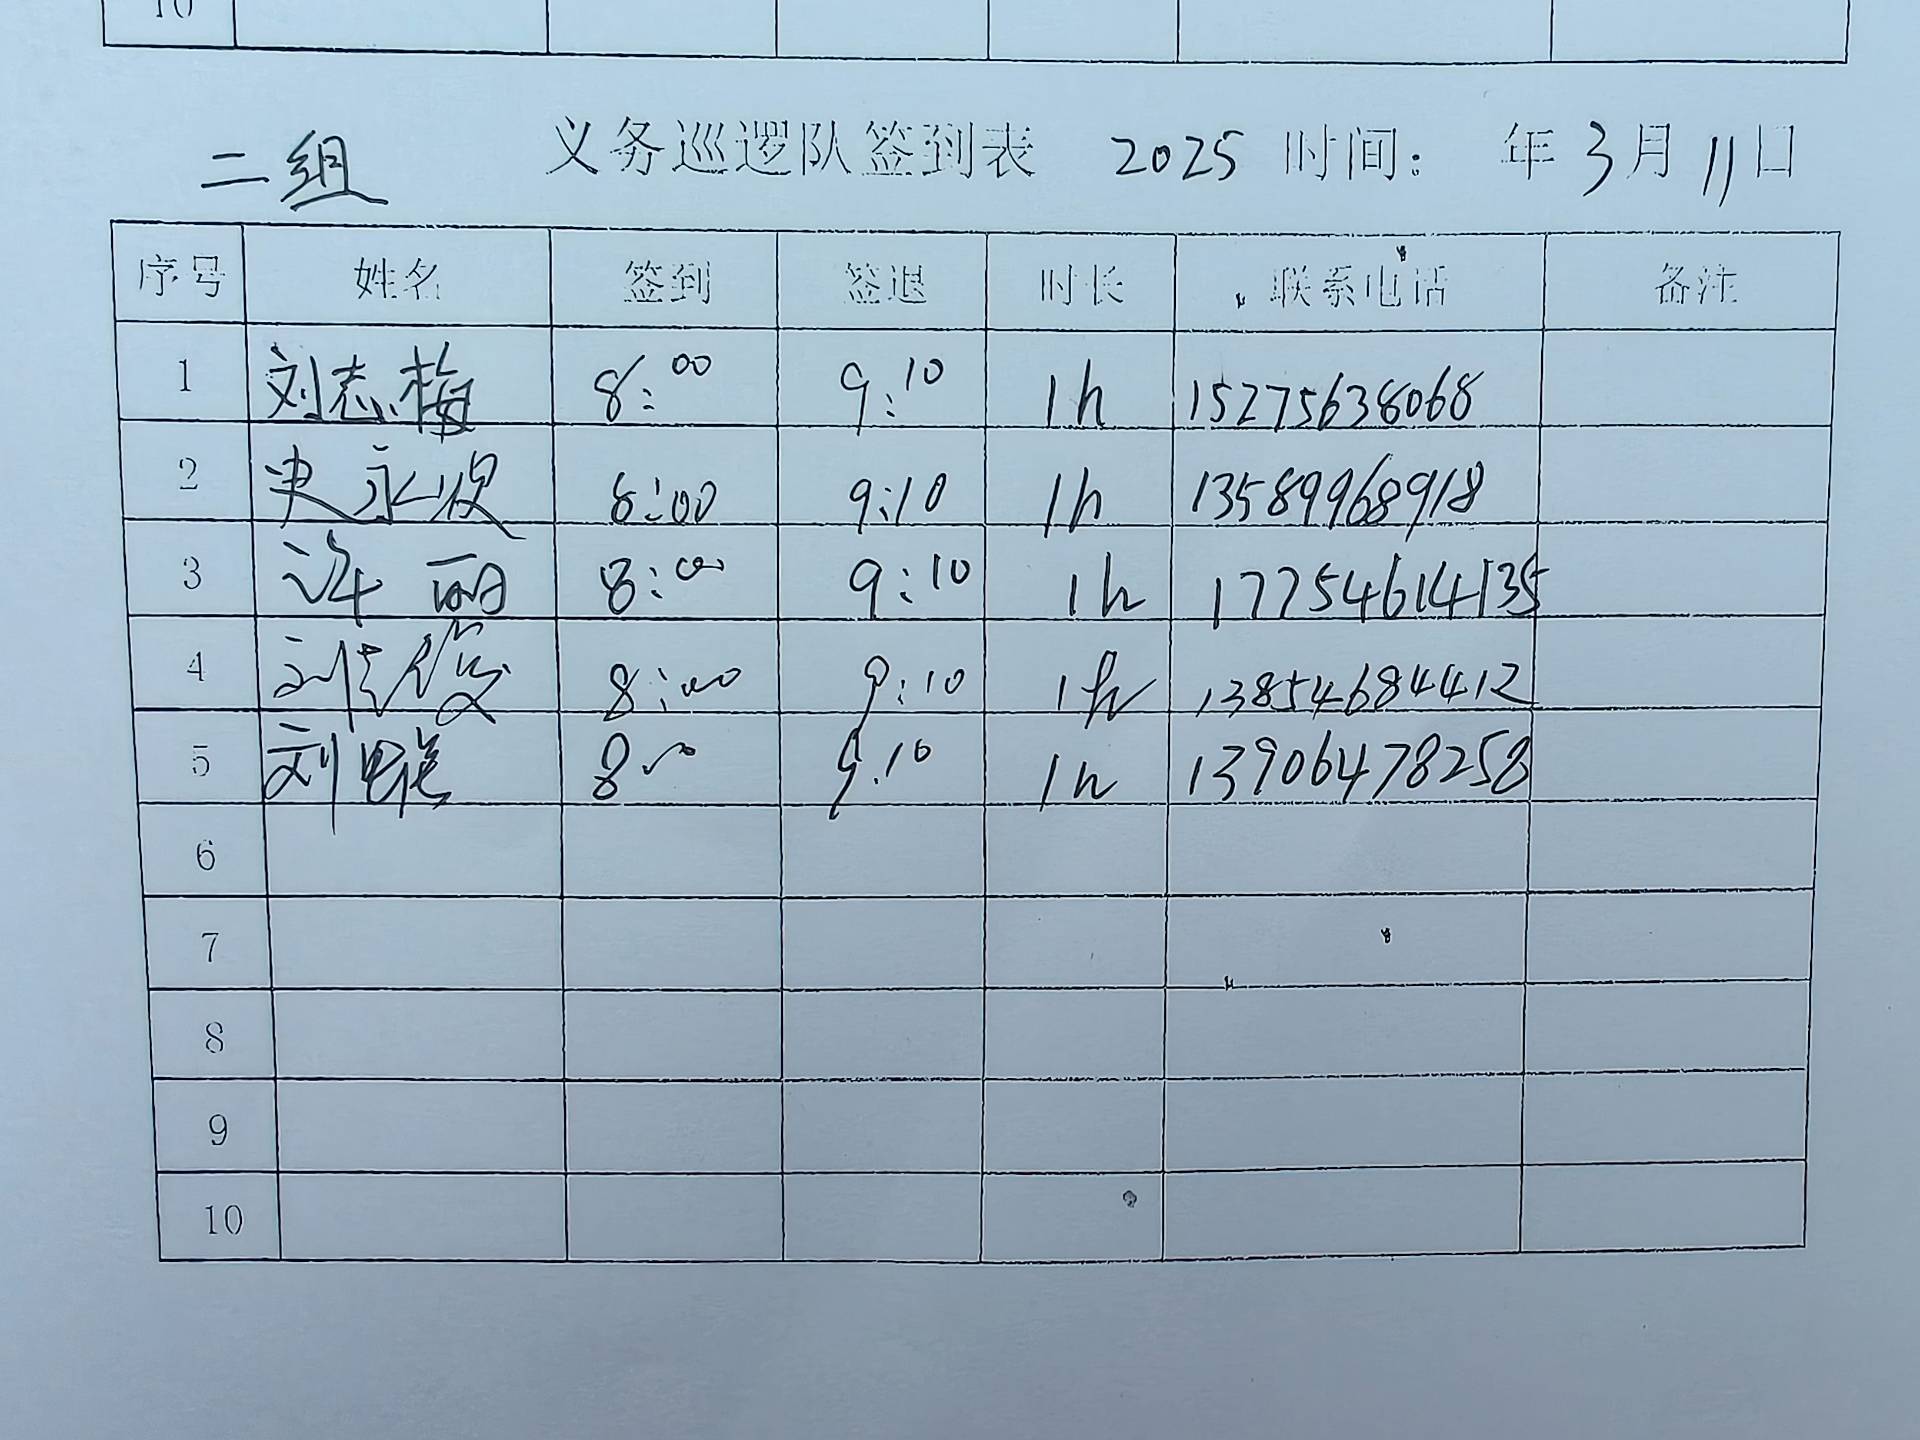 10
二组 义务巡逻队签到表 2025 时间: 年 3月 11日
序号 姓名 签到 签退 时长 联系电话 备注
1 刘志梅 8:00 9:10 1h 15275638068
2 史永俊 8:00 9:10 1h 13589968918
3 许丽 8:00 9:10 1h 17754614135
4 刘 俊 8:00 9:10 1h 13854684412
5 刘 8 00 9.10 1h 13906478258
6
7
8
9
10